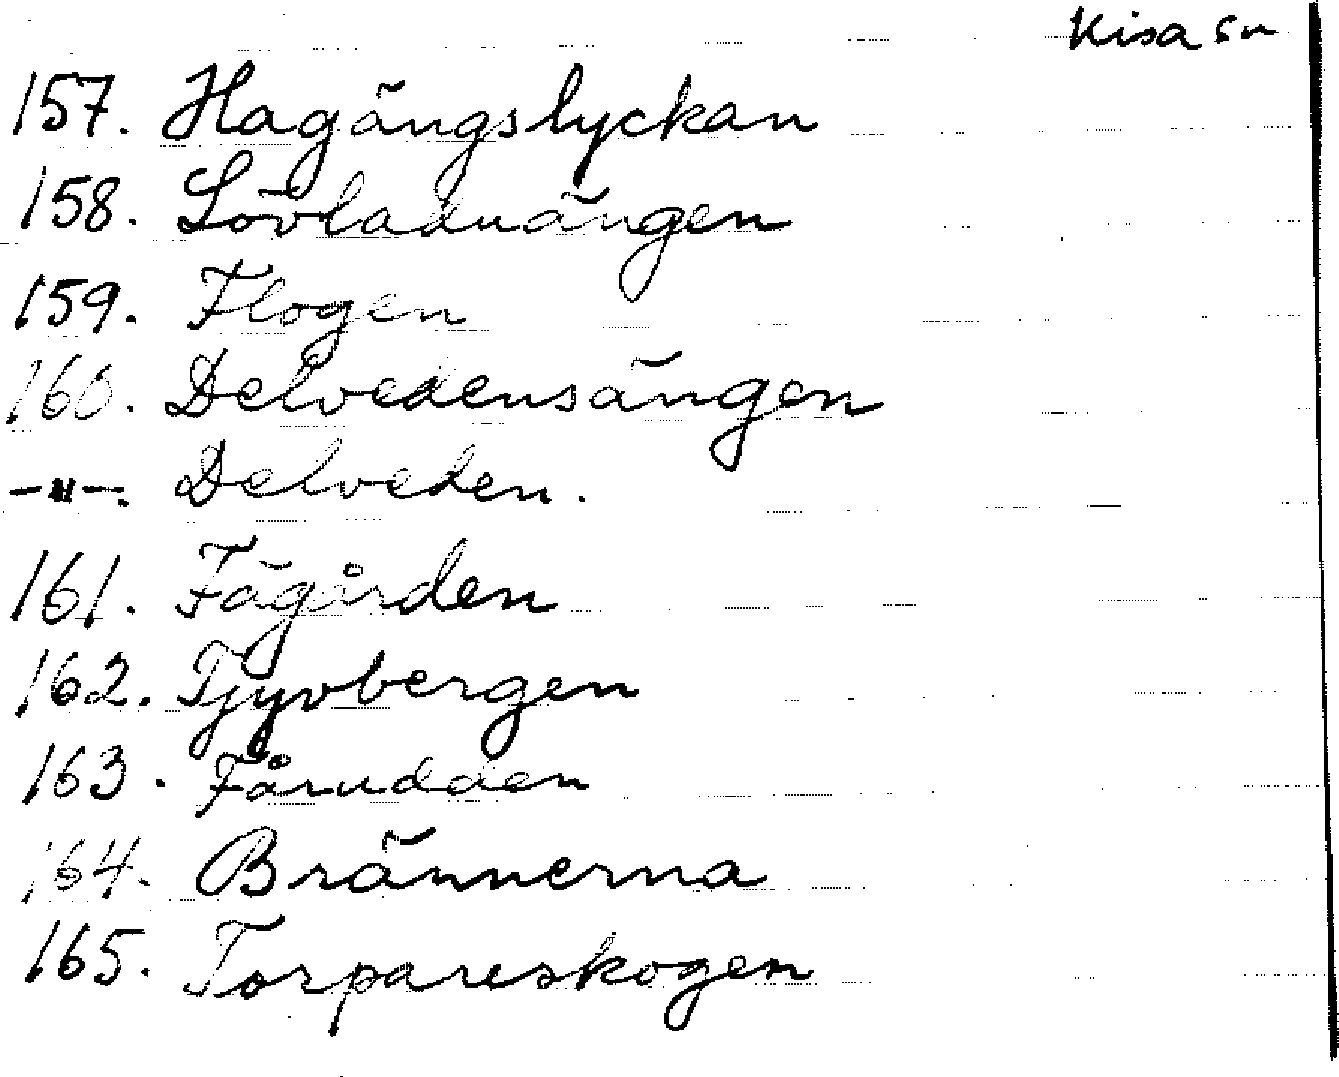 Kisa sn
157. Hagängslyckan
158. Lövladuängen
159. Flogen
160. Delvedensängen
-"-. Delveden.
161. Fägården
162. Tjyvbergen
163. Fårudden
164. Brännerna
165. Torpareskogen